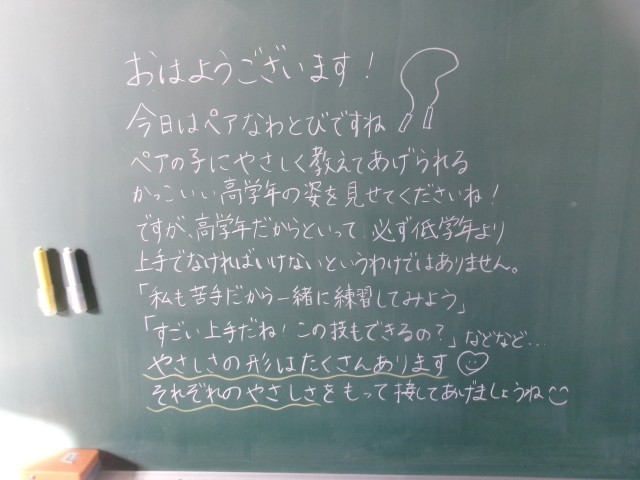 おはようございます!
今日はペアなわとびですね
ペアの子にやさしく教えてあげられる
かっこいい高学年の姿を見せてくださいね!
ですが、高学年だからといって 必ず低学年より
上手でなければいけないというわけではありません。
「私も苦手だから一緒に練習してみよう」
「すごい上手だね!この技もできるの?」などなど…
やさしさの形はたくさんあります
それぞれのやさしさをもって接してあげましょうね